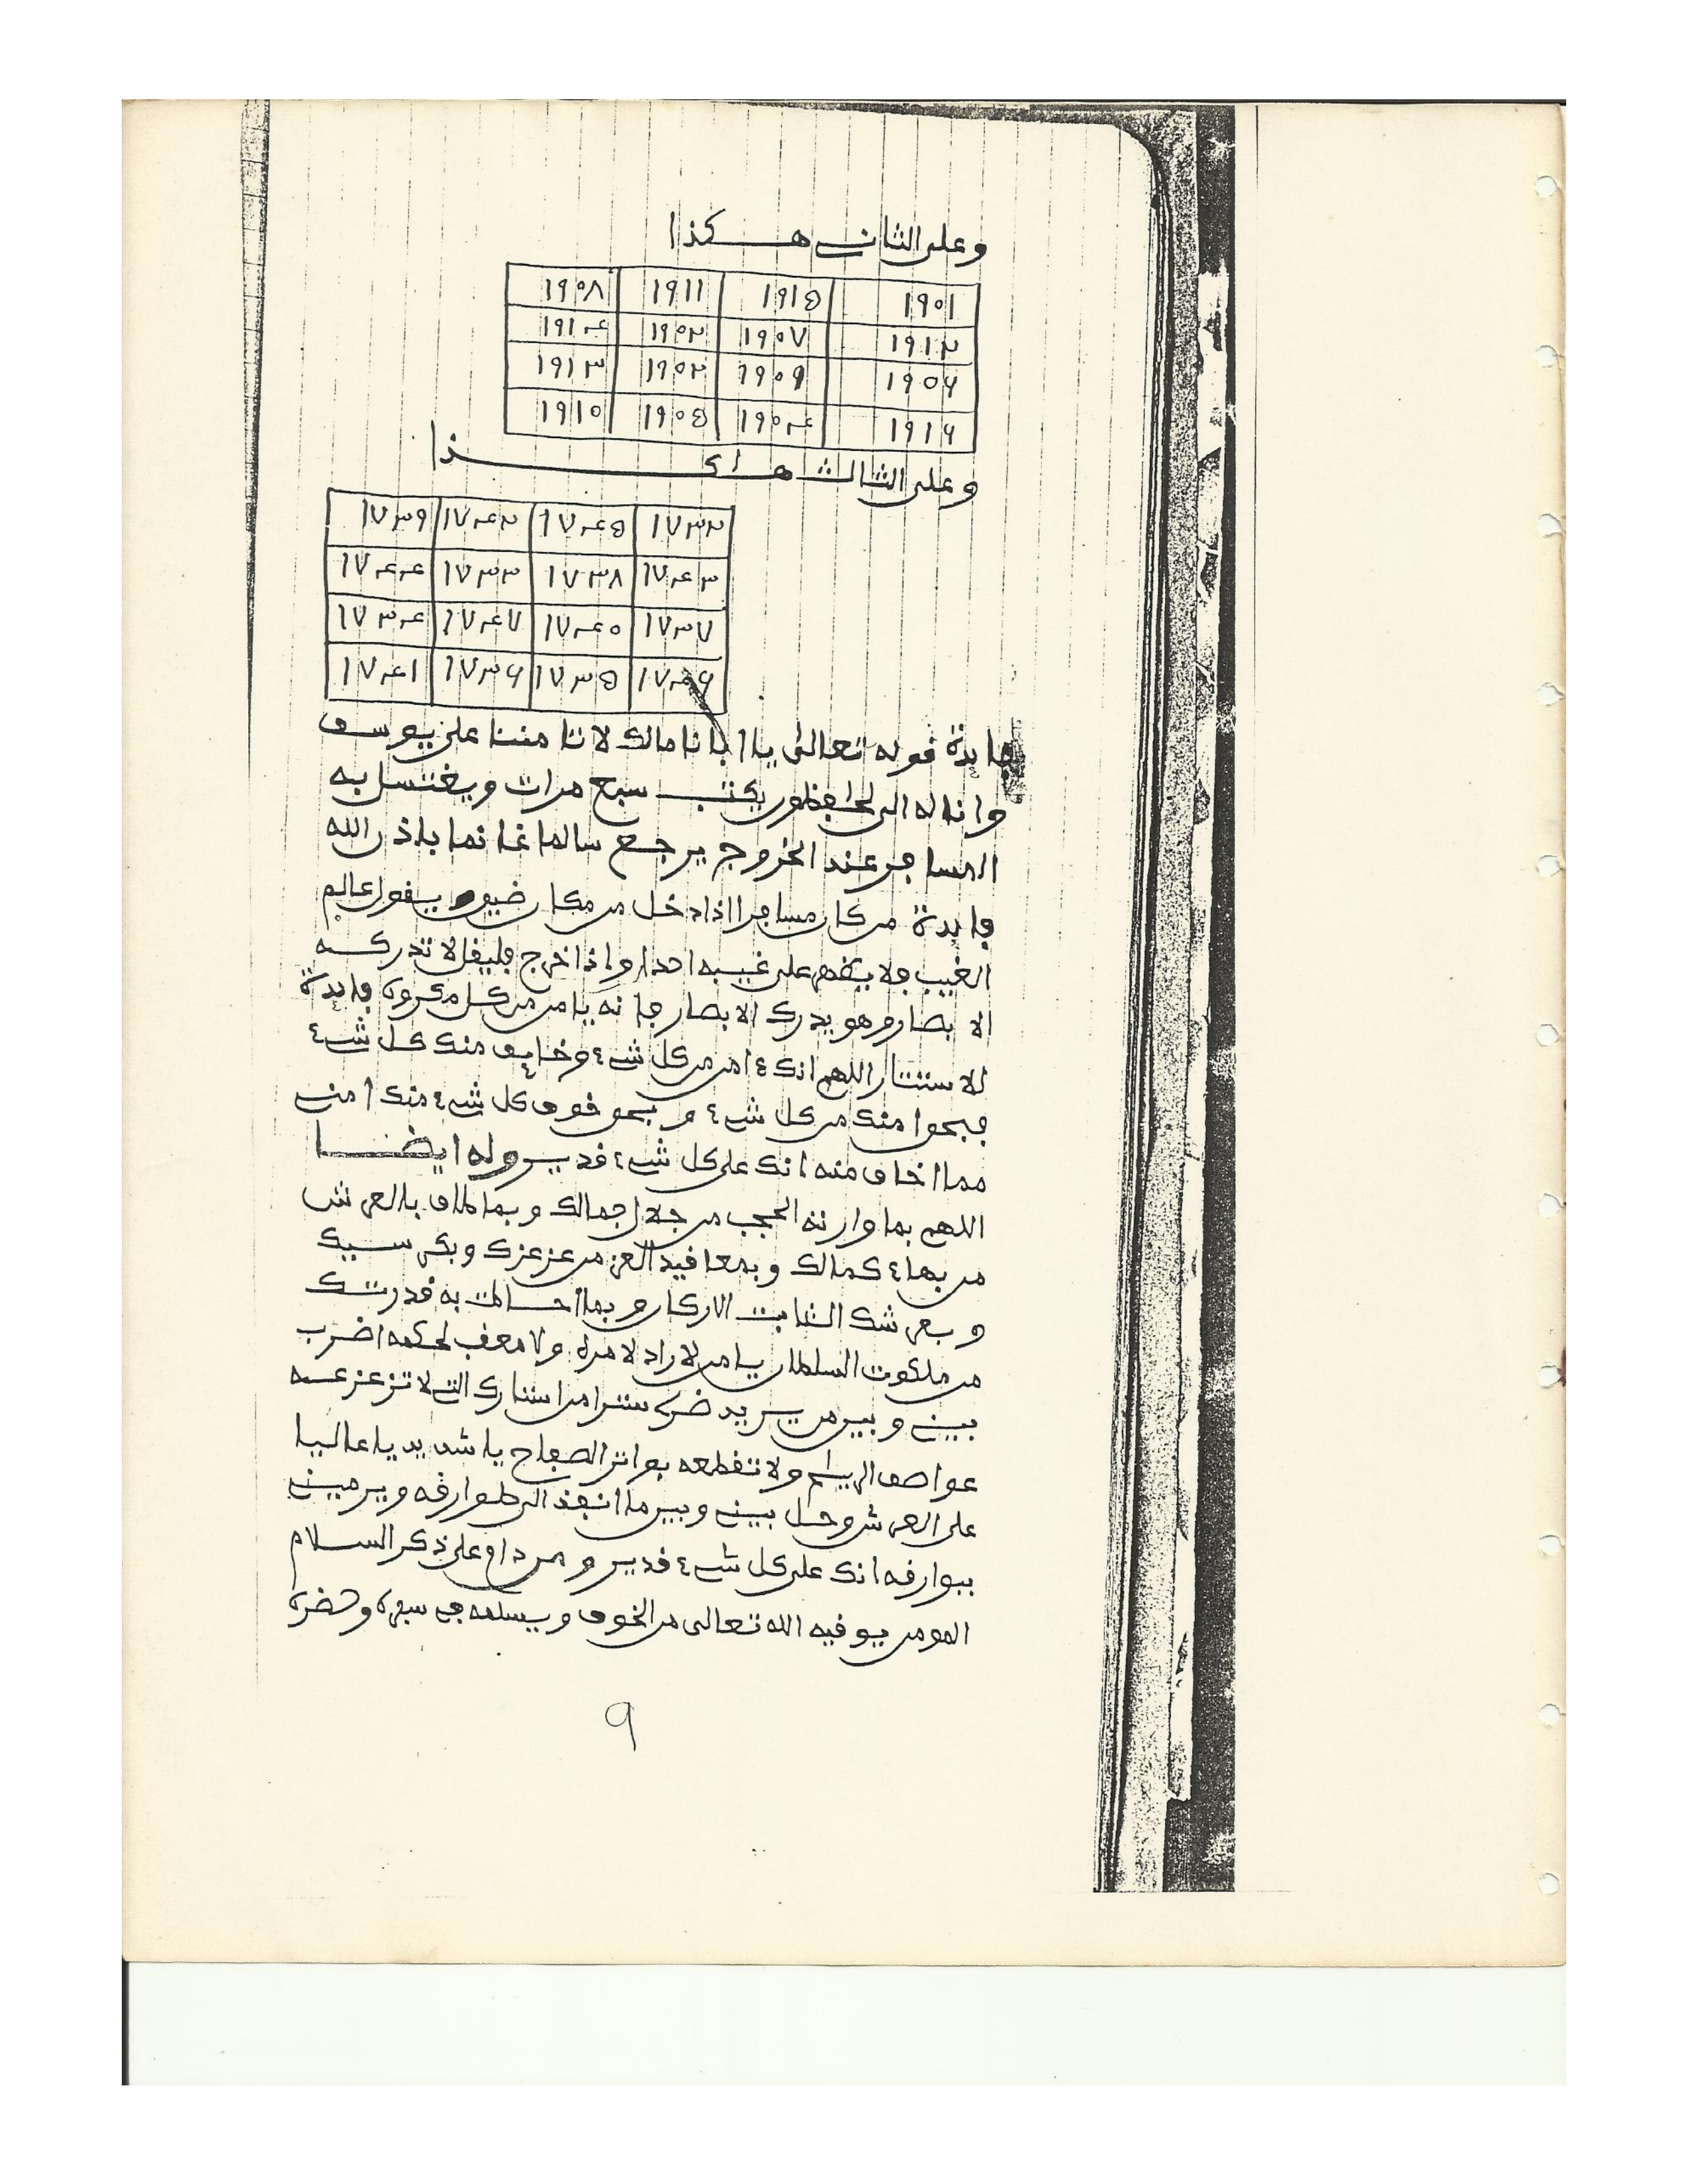 وعلى الثاني هكذا
١٩٠١ ١٩١٥ ١٩١١ ١٩٠٨
١٩١٢ ١٩٠٧ ١٩٠٢ ١٩١٤
١٩٠٦ ١٩٠٩ ١٩٠٢ ١٩١٣
١٩١٦ ١٩٠٤ ١٩٠٥ ١٩١٠
وعلى الثالث هاكذا
١٧٣٢ ١٧٤٥ ١٧٤٢ ١٧٣٩
١٧٤٣ ١٧٣٨ ١٧٣٣ ١٧٤٤
١٧٣٧ ١٧٤٠ ١٧٤٧ ١٧٣٤
١٧٤٦ ١٧٣٥ ١٧٣٦ ١٧٤١
فايدة قوله تعالى يا ابانا مالك لا تامننا على يوسف
وانا له الى لحافظون يكتب سبع مرات ويغتسل به
المسافر عند الخروج يرجع سالما غانما باذن الله
فايدة من كان مسافرا اذا دخل من مكان ضيق يقول عالم
الغيب فلا يظهر على غيبه احدا واذا خرج فليقل لا تدركه
الابصار وهو يدرك الابصار فانه يامن من كل مكروه فايدة
للاستتار اللهم انك ءامن من كل شيء وخايف منك كل شيء
فبحق امنك من كل شيء وبحق خوف كل شيء منك امني
مما اخاف منه انك على كل شيء قدير وله ايضا
اللهم بما وارته الحجب من جلال جمالك وبما طاف بالعرش
من بهاء كمالك وبمعاقيد العز من عز عزك وبكرسيك
وبعرشك الثابت الاركان وبما احاطت به قدرتك
من ملكوت السلطان يا من لا راد لامره ولا معقب لحكمه اضرب
بيني وبين من يريد ضري سترا من استارك التي لا تزعزعه
عواصف الرياح ولا تقطعه بواتر الصفاح يا شديد يا عاليا
على العرش وحل بيني وبين ما انفذ الى طوارقه ويرميني
ببوارقه انك على كل شيء قدير ومن داوم على ذكر السلام
المومن يوقيه الله تعالى من الخوف ويسلمه في سفره وحضره
٩